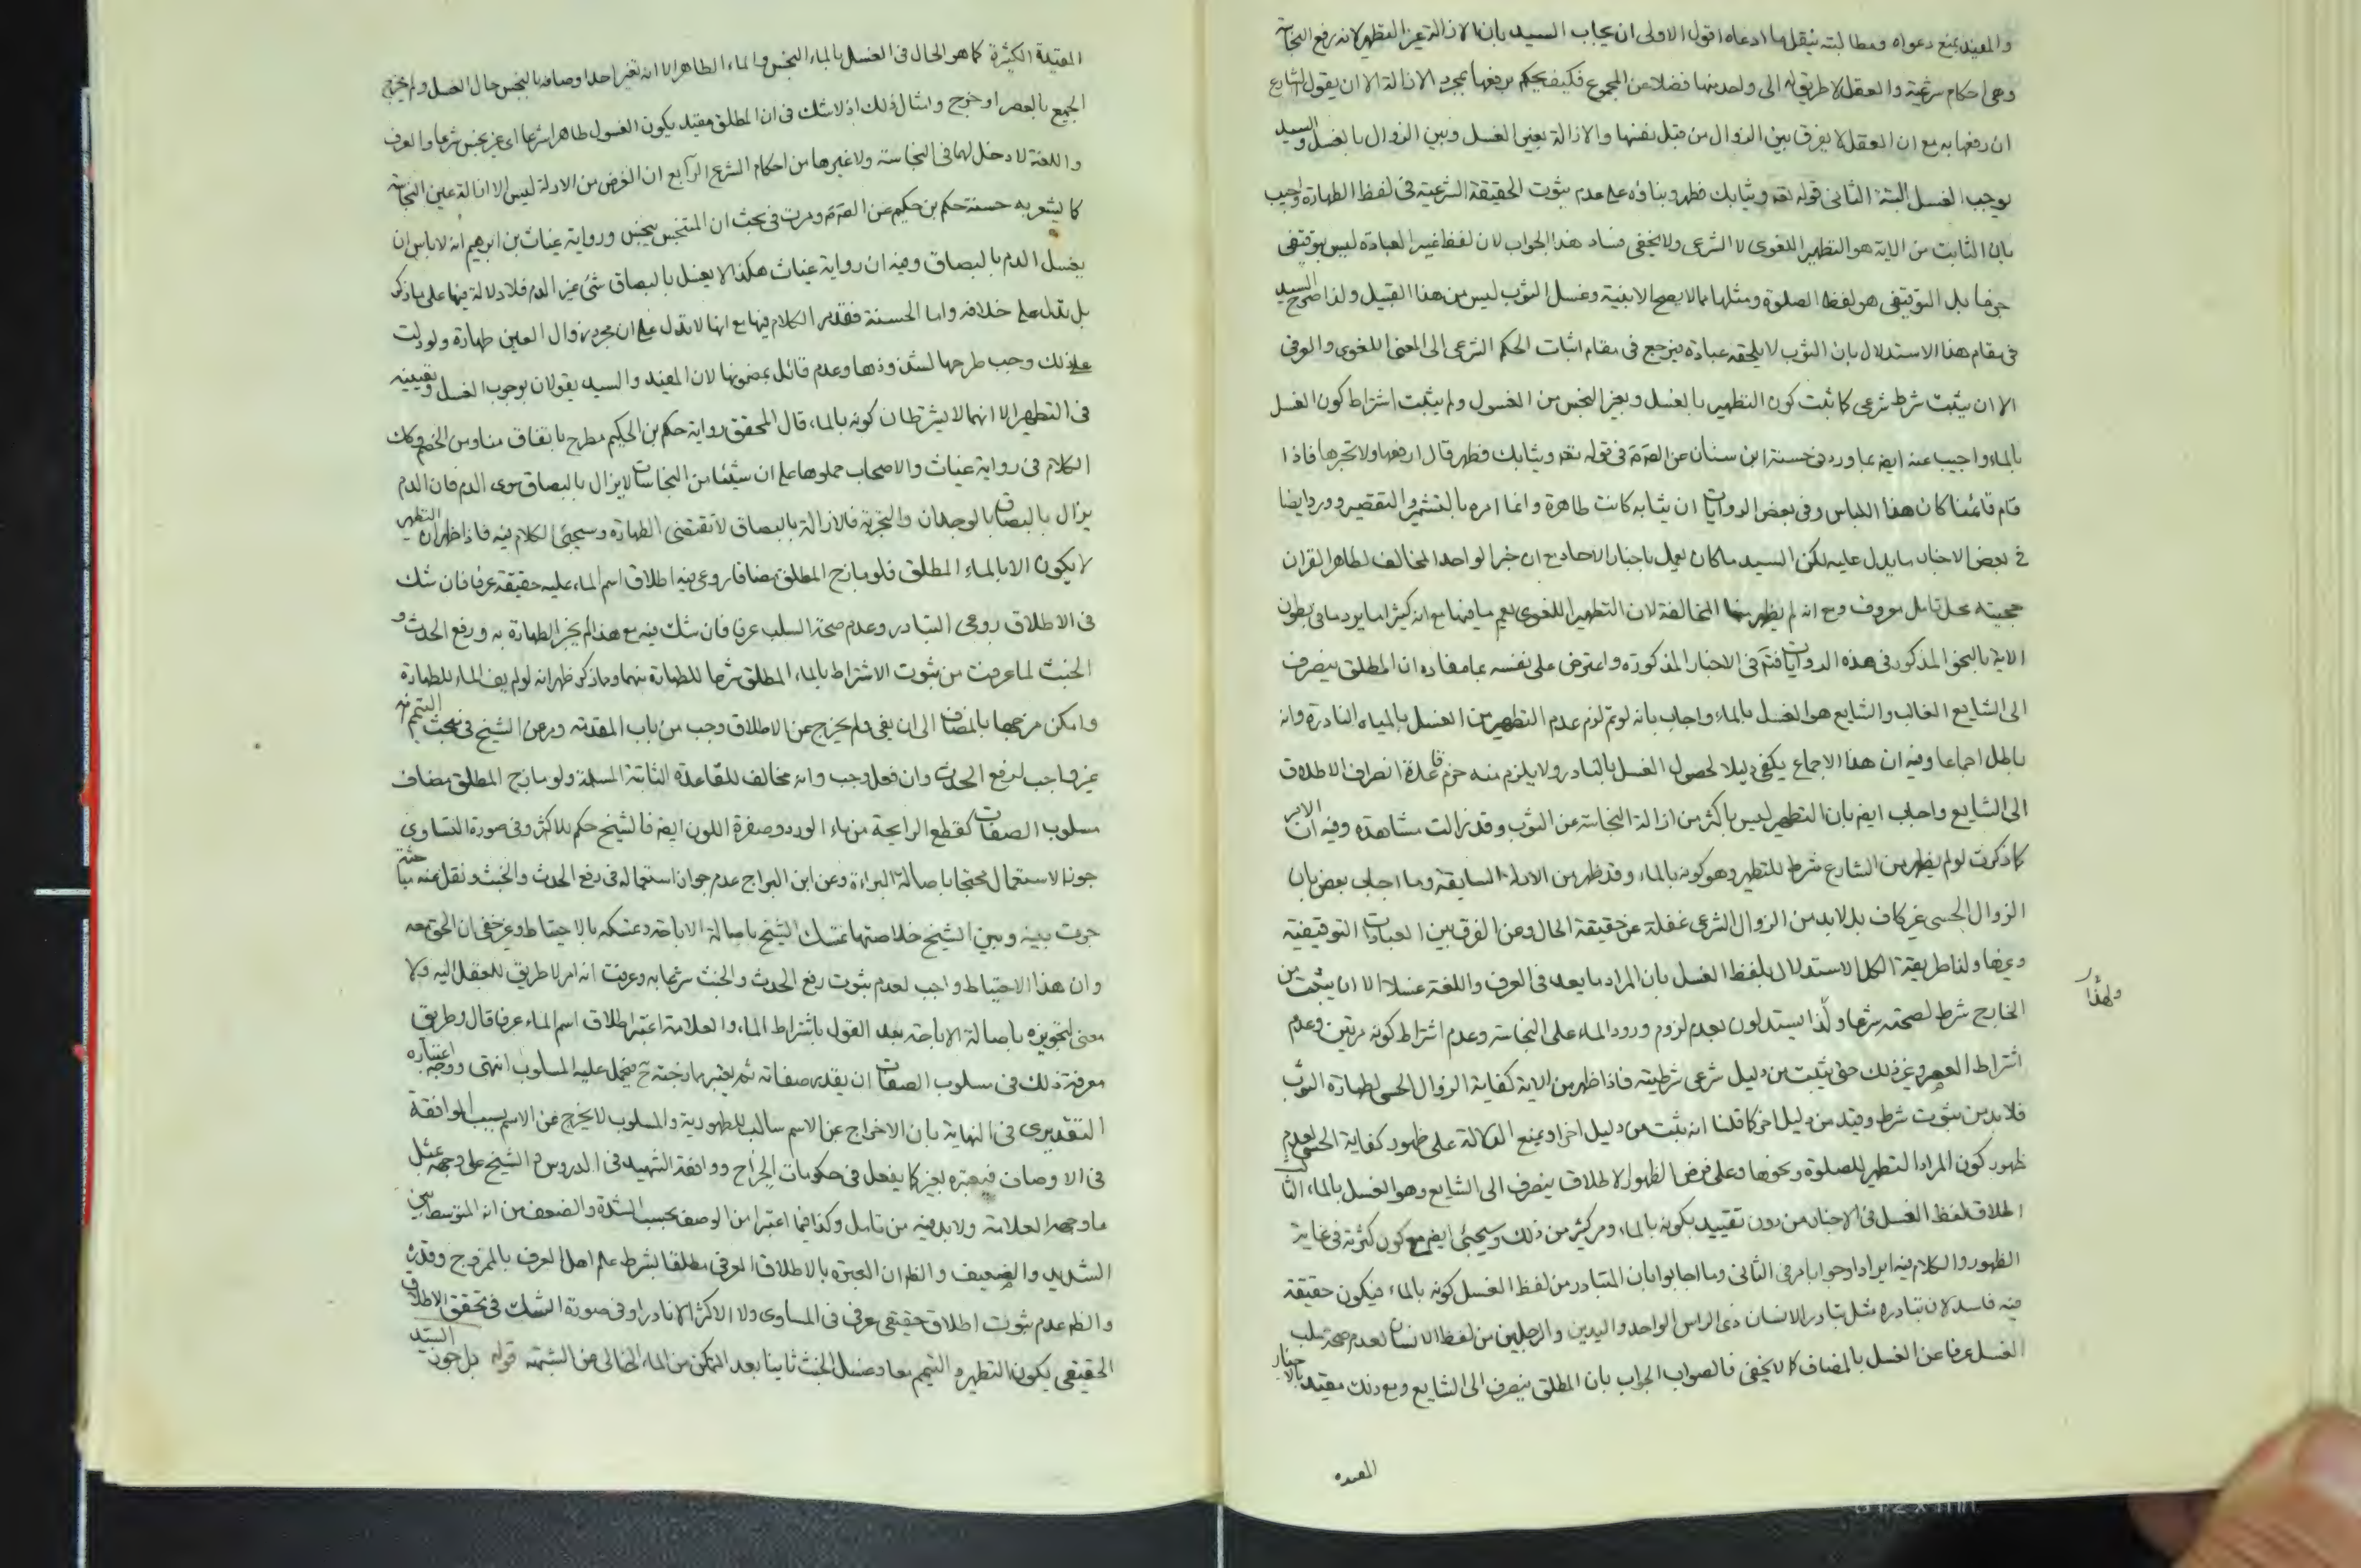 والمفيد بمنع دعواه ومطالبته بنقل ما ادعاه اقول الاولى ان يجاب السيد بان الازالة غير التطهير لانه رفع النجاسة
وهى احكام شرعية والعقل لا طريق له الى واحد منها فضلا عن المجموع فكيف يحكم برفعها بمجرد الازالة الا ان يقول الشارع
ان رفعها به مع ان العقل لا يفرق بين الزوال من قبل نفسها والازالة بغير الغسل وبين الزوال بالغسل والسيد
يوجب الغسل البتة الثانى قوله تعه وثيابك فطهر وبناؤه على عدم ثبوت الحقيقة الشرعية فى لفظ الطهارة واجيب
بان الثابت من الاية هو التطهير اللغوى لا الشرعى ولا يخفى فساد هذا الجواب لان لفظ غير العبادة ليس بتوقيفى
جزما بل التوقيفى هو لفظ الصلوة ومثلها مما لا يصح الا بنية وغسل الثوب ليس من هذا القبيل ولذا صرح السيد
فى مقام هذا الاستدلال بان الثوب لا يلحقه عبادة فيرجع فى مقام اثبات الحكم الشرعى الى المعنى اللغوى والعرفى
الا ان يثبت شرط شرعى كما ثبت كون التطهير بالغسل وبغير النجس من الغسول ولم يثبت اشتراط كون الغسل
بالماء واجيب عنه ايض بما ورد فى حسنة ابن سنان عن الصم فى قوله تعه وثيابك فطهر قال ارفعها ولا تجرها فاذا
قام قائمنا كان هذا اللباس وفى بعض الروايات ان ثيابه كانت طاهرة وانما امره بالتشمير والتقصير وورد ايضا
فى بعض الاخبار ما يدل عليه لكن السيد ما كان يعمل باخبار الاحاد مع ان خبر الواحد المخالف لظاهر القران
حجيته محل تامل معروف ومع انه لم يظهر منها المخالفة لان التطهير اللغوى يعم ما فيها مع انه كثيرا ما يرد ما فى بطون
الاية بالنحو المذكور فى هذه الروايات فتم فى الاخبار المذكورة واعترض على نفسه بما مفاده ان المطلق ينصرف
الى الشايع الغالب والشايع هو الغسل بالماء واجاب بانه لو تم لزم عدم التطهير من الغسل بالمياه النادرة وانه
باطل اجماعا وفيه ان هذا الاجماع يكفى دليلا لحصول الغسل بالنادر ولا يلزم منه خرم قاعدة انصراف الاطلاق
الى الشايع واجاب ايض بان التطهير ليس باكثر من ازالة النجاسة عن الثوب وقد زالت مشاهدة وفيه ان الامر
كما ذكرت لو لم يظهر من الشارع شرط للتطهير وهو كونه بالماء وقد ظهر من الادلة السابقة وما اجاب بعض بان
الزوال الحسى غير كاف بل لا بد من الزوال الشرعى غفلة عن حقيقة الحال وعن الفرق بين العبادات التوقيفية
وغيرها ولنا طريقة الكل الاستدلال بلفظ الغسل بان المراد ما يعد فى العرف واللغة غسلا الا ان يثبت من
الخارج شرط لصحته شرعا ولذا يستدلون بعدم لزوم ورود الماء على النجاسة وعدم اشتراط كونه مرتين وعدم
ولهذا
اشتراط العصر وغير ذلك حتى يثبت من دليل شرعى شرطيته فاذا ظهر من الاية كفاية الزوال الحسى لطهارة الثوب
فلا بد من ثبوت شرط وقيد من دليل اخر كما قلنا انه يثبت من دليل اخر او يمنع الدلالة على ظهور كفاية الحسى لعدم
ظهور كون المراد التطهير للصلوة ونحوها وعلى فرض الظهور الاطلاق ينصرف الى الشايع وهو الغسل بالماء الثالث
اطلاق لفظ الغسل فى الاخبار من دون تقييد بكونه بالماء ومر كثير من ذلك وسيجئ ايض مع كون كثرته فى غاية
الظهور والكلام فيه ايرادا وجوابا مر فى الثانى وما اجابوا بان المتبادر من لفظ الغسل كونه بالماء فيكون حقيقة
فيه فاسد لان تبادره مثل تبادر الانسان ذى الراس الواحد واليدين والرجلين من لفظ الانسان لعدم صحة سلب
الغسل عرفا عن الغسل بالمضاف كما لا يخفى فالصواب الجواب بان المطلق ينصرف الى الشايع ومع ذلك مقيد بالاخبار
المقيده
المقيدة الكثيرة كما هو الحال فى الغسل بالماء النجس والماء الطاهر الا انه تغير احد اوصافه بالنجس حال الغسل ولم يخرج
الجميع بالعصر او خرج وامثال ذلك اذ لا شك فى ان المطلق مقيد بكون الغسول طاهرا شرعا اى غير نجس شرعا والعرف
واللغة لا دخل لهما فى النجاسة ولا غيرها من احكام الشرع الرابع ان الغرض من الادلة ليس الا ازالة عين النجاسة
كما يشعر به حسنة حكم بن حكيم عن الصم ومرت فى بحث ان المتنجس ينجس ورواية غياث بن ابرهيم انه لا باس ان
يغسل الدم بالبصاق وفيه ان رواية غياث هكذا لا يغسل بالبصاق شئ غير الدم فلا دلالة فيها على ما ذكر
بل تدل على خلافه واما الحسنة فقد مر الكلام فيها مع انها لا تدل على ان مجرد زوال العين طهارة ولو دلت
على ذلك وجب طرحها لشذوذها وعدم قائل بمضمونها لان المفيد والسيد يقولان بوجوب الغسل وتعيينه
فى التطهير الا انهما لا يشترطان كونه بالماء قال المحقق رواية حكم بن الحكيم مطرح باتفاق منا ومن الخصم وكذا
الكلام فى رواية غياث والاصحاب حملوها على ان شيئا من النجاسات لا يزال بالبصاق سوى الدم فان الدم
يزال بالبصاق بالوجدان والتجربة فالازالة بالبصاق لا تقتضى الطهارة وسيجئ الكلام فيه فاذا ظهر ان التطهير
لا يكون الا بالماء المطلق فلو مازج المطلق مضافا روعى فيه اطلاق اسم الماء عليه حقيقة عرفا فان شك
فى الاطلاق روعى التبادر وعدم صحة السلب عرفا فان شك فيه مع هذا لم يجز الطهارة به ورفع الحدث و
الخبث لما عرفت من ثبوت الاشتراط بالماء المطلق شرعا للطهارة منهما ومما ذكر ظهر انه لو لم يف الماء للطهارة
وامكن مزجها بالمضاف الى ان يفى ولم يخرج عن الاطلاق وجب من باب المقدمة ومر عن الشيخ فى بحث التيمم انه
غير واجب لرفع الحدث وان فعل وجب وانه مخالف للقاعدة الثابتة المسلمة ولو مازج المطلق مضاف
مسلوب الصفات كقطع الرايحة من ماء الورد وصفرة اللون ايض فالشيخ حكم للاكثر وفى صورة التساوى
جوز الاستعمال محتجا باصالة البراءة وعن ابن البراج عدم جواز استعماله فى رفع الحدث والخبث ونقل عنه مباحثة
جرت بينه وبين الشيخ خلاصتها تمسك الشيخ باصالة الاباحة وتمسكه بالاحتياط وغير خفى ان الحق معه
وان هذا الاحتياط واجب لعدم ثبوت رفع الحدث والخبث شرعا به وعرفت انه امر لا طريق للعقل اليه ولا
معنى لتجويزه باصالة الاباحة بعد القول باشتراط الماء والعلامة اعتبر اطلاق اسم الماء عرفا قال وطريق
معرفة ذلك فى مسلوب الصفات ان يقدر صفاته ثم يعتبر ممازجته ح فيحمل عليه المسلوب انتهى ووجه اعتباره
التقديرى فى النهاية بان الاخراج عن الاسم سالب للطهورية والمسلوب لا يخرج عن الاسم بسبب الموافقة
فى الاوصاف فيعتبره بغير كما يفعل فى حكومات الجراح ووافقه الشهيد فى الدروس والشيخ على وجهه بمثل
ما وجه العلامة ولا بد فيه من تامل وكذا فيما اعتبرا من الوصف بحسب الشدة والضعف من انه المتوسط بين
الشديد والضعيف والظ ان العبرة بالاطلاق العرفى مطلقا بشرط علم اهل العرف بالممزوج وقدره
والظ عدم ثبوت اطلاق حقيقى عرفى فى المساوى ولا الاكثر الا نادرا وفى صورة الشك فى تحقق الاطلاق
الحقيقى يكون التطهير والتيمم معا وغسل الخبث ثانيا بعد التمكن من الماء الخالى عن الشبهة قوله بل جوز السيد